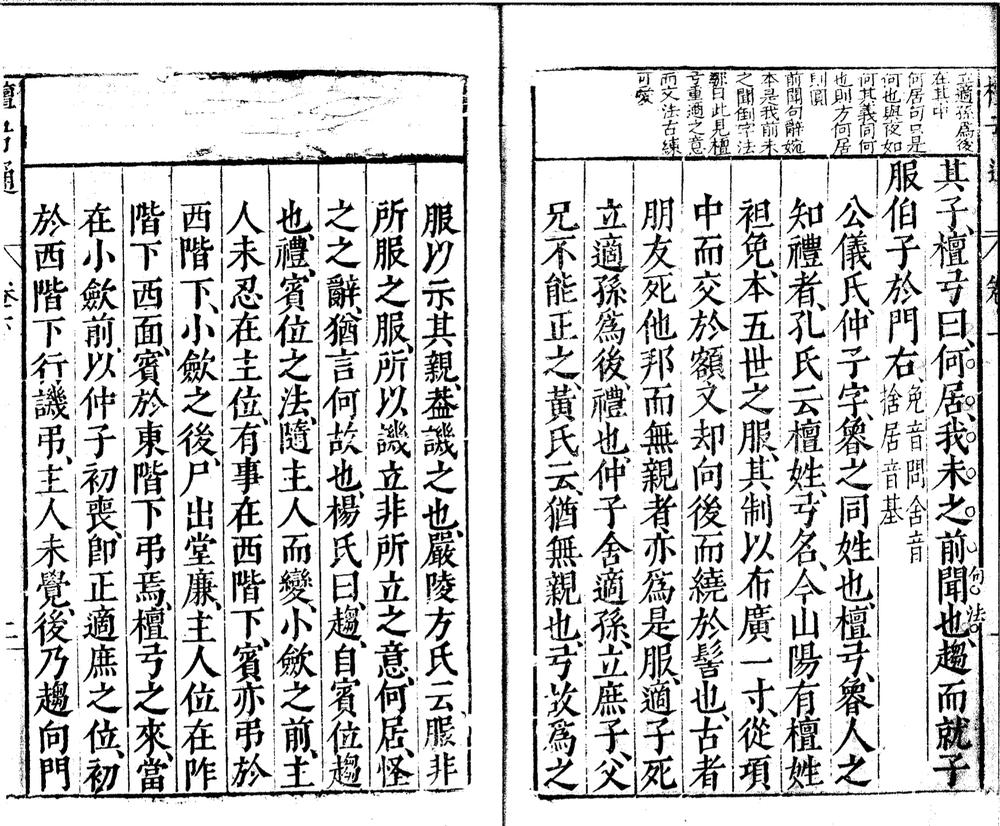 立適孫爲後
在其中
何居句只是
何也與夜如
何其義同何
也則方何居
則圓
前聞句辭婉
本是我前未
之聞倒字法
鄒曰此見檀
弓重適之意
而文法古練
可愛
其子、檀弓曰、何居、我未之前聞也、句法趨而就子
服伯子於門右、免音問舍音
捨居音基
公儀氏、仲子字、魯之同姓也、檀弓、魯人之
知禮者、孔氏云檀姓、弓名、今山陽有檀姓
袒免、本五世之服、其制以布廣一寸、從項
中而交於額又却向後而繞於髻也、古者
朋友死他邦而無親者、亦爲是服、適子死
立適孫爲後、禮也、仲子舍適孫、立庶子、父
兄不能正之、黃氏云、猶無親也、弓故爲之
服以示其親、葢譏之也、嚴陵方氏云服非
所服之服、所以譏立非所立之意、何居、怪
之之辭、猶言何故也、楊氏曰、趨、自賓位趨
也、禮、賓位之法、隨主人而變、小斂之前、主
人未忍在主位、有事在西階下、賓亦弔於
西階下、小斂之後、尸出堂廉、主人位在阼
階下西面、賓於東階下弔焉、檀弓之來、當
在小斂前、以仲子初喪、卽正適庶之位、初
於西階下行譏弔、主人未覺、後乃趨向門